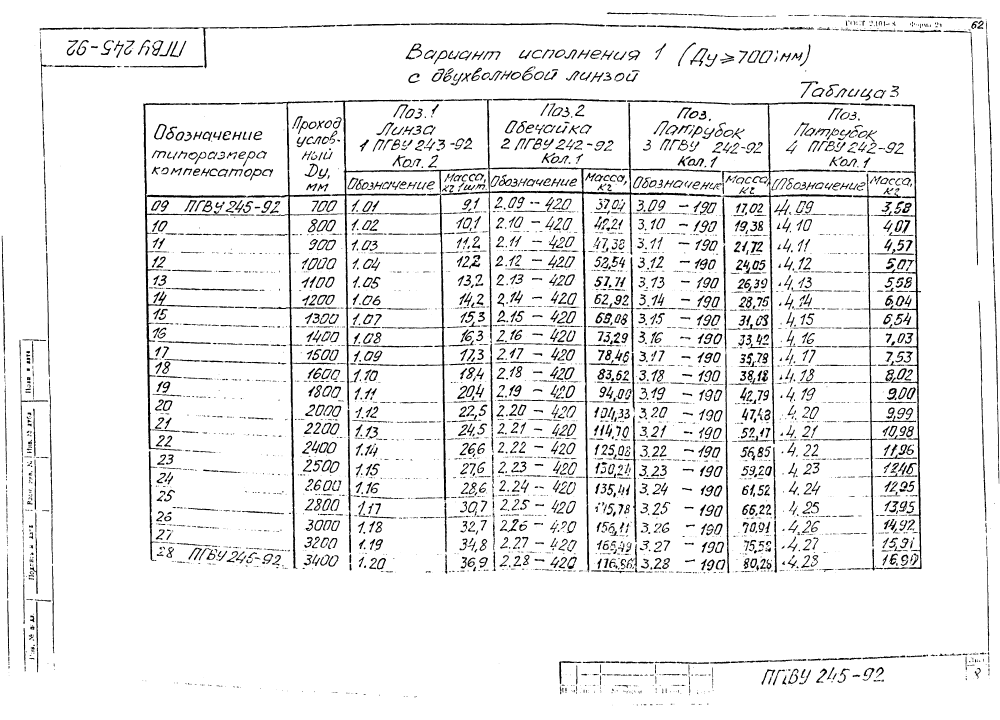 ГОСТ 2.104-68 Форма 2а 62
ПГВУ 245-92
Вариант исполнения 1 (Ду⩾700 мм)
с двухволновой линзой
Таблица 3
Обозначение типоразмера компенсатора | Проход условный Dу, мм | Поз. 1 Линза 1 ПГВУ 243-92 Кол. 2 | Поз. 2 Обечайка 2 ПГВУ 242-92 Кол. 1 | Поз. Патрубок 3 ПГВУ 242-92 Кол. 1 | Поз. Патрубок 4 ПГВУ 242-92 Кол. 1
Обозначение | Масса, кг 1шт. | Обозначение | Масса, кг | Обозначение | Масса, кг | Обозначение | Масса, кг
09 ПГВУ 245-92 700 1.01 9,1 2.09 - 420 37,04 3.09 - 190 17,02 4.09 3,58
10 800 1.02 10,1 2.10 - 420 42,21 3.10 - 190 19,38 4.10 4,07
11 900 1.03 11,2 2.11 - 420 47,38 3.11 - 190 21,72 4.11 4,57
12 1000 1.04 12,2 2.12 - 420 52,54 3.12 - 190 24,05 4.12 5,07
13 1100 1.05 13,2 2.13 - 420 57,71 3.13 - 190 26,39 4.13 5,58
14 1200 1.06 14,2 2.14 - 420 62,92 3.14 - 190 28,76 4.14 6,04
15 1300 1.07 15,3 2.15 - 420 68,08 3.15 - 190 31,08 4.15 6,54
16 1400 1.08 16,3 2.16 - 420 73,29 3.16 - 190 33,42 4.16 7,03
17 1500 1.09 17,3 2.17 - 420 78,46 3.17 - 190 35,78 4.17 7,53
18 1600 1.10 18,4 2.18 - 420 83,62 3.18 - 190 38,18 4.18 8,02
19 1800 1.11 20,4 2.19 - 420 94,00 3.19 - 190 42,79 4.19 9,00
20 2000 1.12 22,5 2.20 - 420 104,33 3.20 - 190 47,48 4.20 9,99
21 2200 1.13 24,5 2.21 - 420 114,70 3.21 - 190 52,17 4.21 10,98
22 2400 1.14 26,6 2.22 - 420 125,08 3.22 - 190 56,85 4.22 11,96
23 2500 1.15 27,6 2.23 - 420 130,24 3.23 - 190 59,20 4.23 12,46
24 2600 1.16 28,6 2.24 - 420 135,41 3.24 - 190 61,52 4.24 12,95
25 2800 1.17 30,7 2.25 - 420 145,78 3.25 - 190 66,22 4.25 13,95
26 3000 1.18 32,7 2.26 - 420 156,11 3.26 - 190 70,91 4.26 14,92
27 3200 1.19 34,8 2.27 - 420 166,49 3.27 - 190 75,58 4.27 15,91
28 ПГВУ 245-92 3400 1.20 36,9 2.28 - 420 176,86 3.28 - 190 80,28 4.28 16,90
ПГВУ 245-92
Лист